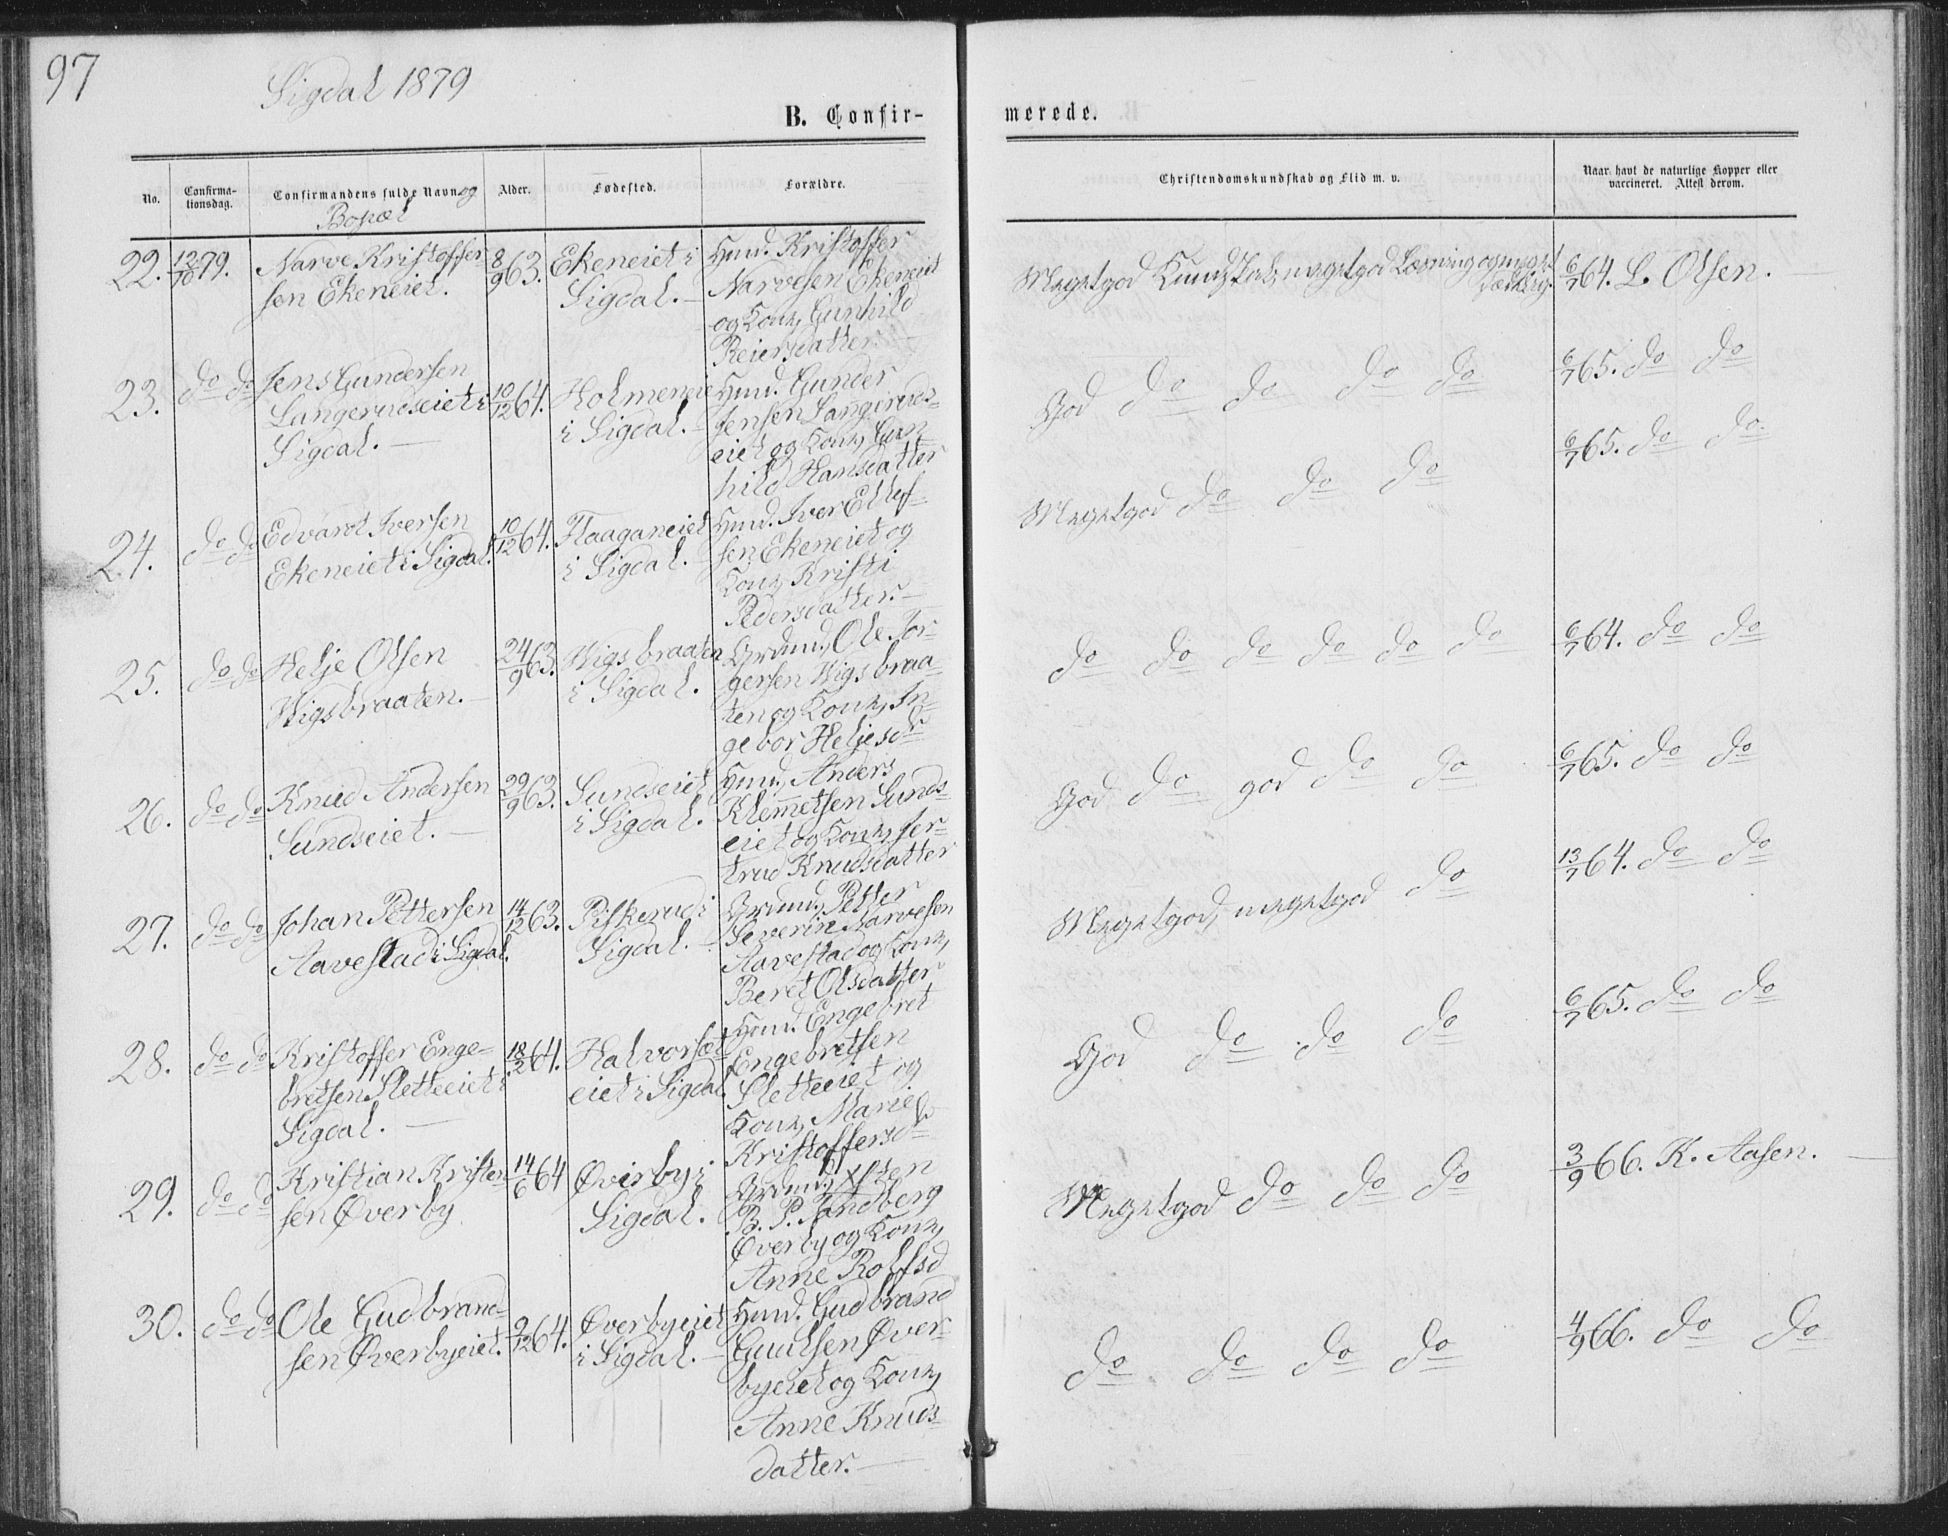 97
Sigdal 1879
B. Confir-
merede.
No.
Confirma-
tionsdag.
Confirmandens fulde Navn og
Bopæl
Alder.
Fødested.
Forældre.
Christendomskundskab og Flid m. v.
Naar havt de naturlige Kopper eller
vaccineret. Attest derom.
22. 12/10 79. Narve Kristoffer
sen Ekeneiet.
8/9 63. Ekeneiet i
Sigdal. —
Hmd. Kristoffer
Narvesen Ekeneiet
og Kone, Gunhild
Reiersdatter. —
Megetgod Kundskab, megetgod Læsning og meget
6/7 64. L. Olsen. —
23. do do Jens Gundersen
Langerudseiet i
Sigdal. —
10/12 64. Holmeneie
i Sigdal. —
Hmd. Gunder
Jensen Langeruds-
eiet og Kone, Gun-
hild Hansdatter
God do do do do
6/7 65. do do
24. do do Edvardt Iversen
Ekeneiet i Sigdal.
10/12 64. Flaaganeiet
i Sigdal. —
Hmd. Iver Ellef-
sen Ekeneiet og
Kone, Kristi
Pedersdatter. —
Megetgod do do do
6/7 65. do do
25. do do Helje Olsen
Wigsbraaten. —
24/9 63. Wigsbraaten
i Sigdal.
Grdmd, Ole Jør-
gersen Wigsbraa-
ten og Kone, In-
gebor Heljesd
do do do do do do
6/7 64. do do
26. do do Knud Andersen
Sundseiet. —
29/9 63. Sundseiet
i Sigdal.
Hmd, Anders
Klemetsen Sunds-
eiet og Kone, Jer-
trud Knudsdatter
God do god do do
6/7 65. do do
27. do do Johan Pettersen
Aavestad i Sigdal.
14/12 63. Piskerud i
Sigdal. —
Grdmd, Petter
Severin Narvesen
Aavestad og Kone,
Beret Olsdatter
Megetgod, megetgod do
13/7 64. do do
28. do do Kristoffer Enge-
bretsen Sletteeiet i
Sigdal. —
18/2 64. Halvorsæt
eiet i Sigdal
Hmd. Engebret
Engebretsen
Sletteeiet og
Kone, Marie
Kristoffersd
God do do do
6/7 65. do do
29. do do Kristian Kristen
sen Øverby
14/6 64 Øverby i
Sigdal.
Grdmd,
B. P. Sandberg
Øverby og Kone,
Anne Rolfsd
Megetgod do do do
3/9 66. K. Aasen. —
30. do do Ole Gudbrand-
sen Øverbyeiet.
9/12 64. Øverbyeiet
i Sigdal. —
Hmd. Gudbrand
Guulsen Øver-
byeiet og Kone,
Anne Knuds-
datter. —
do do do do
4/9 66. do do